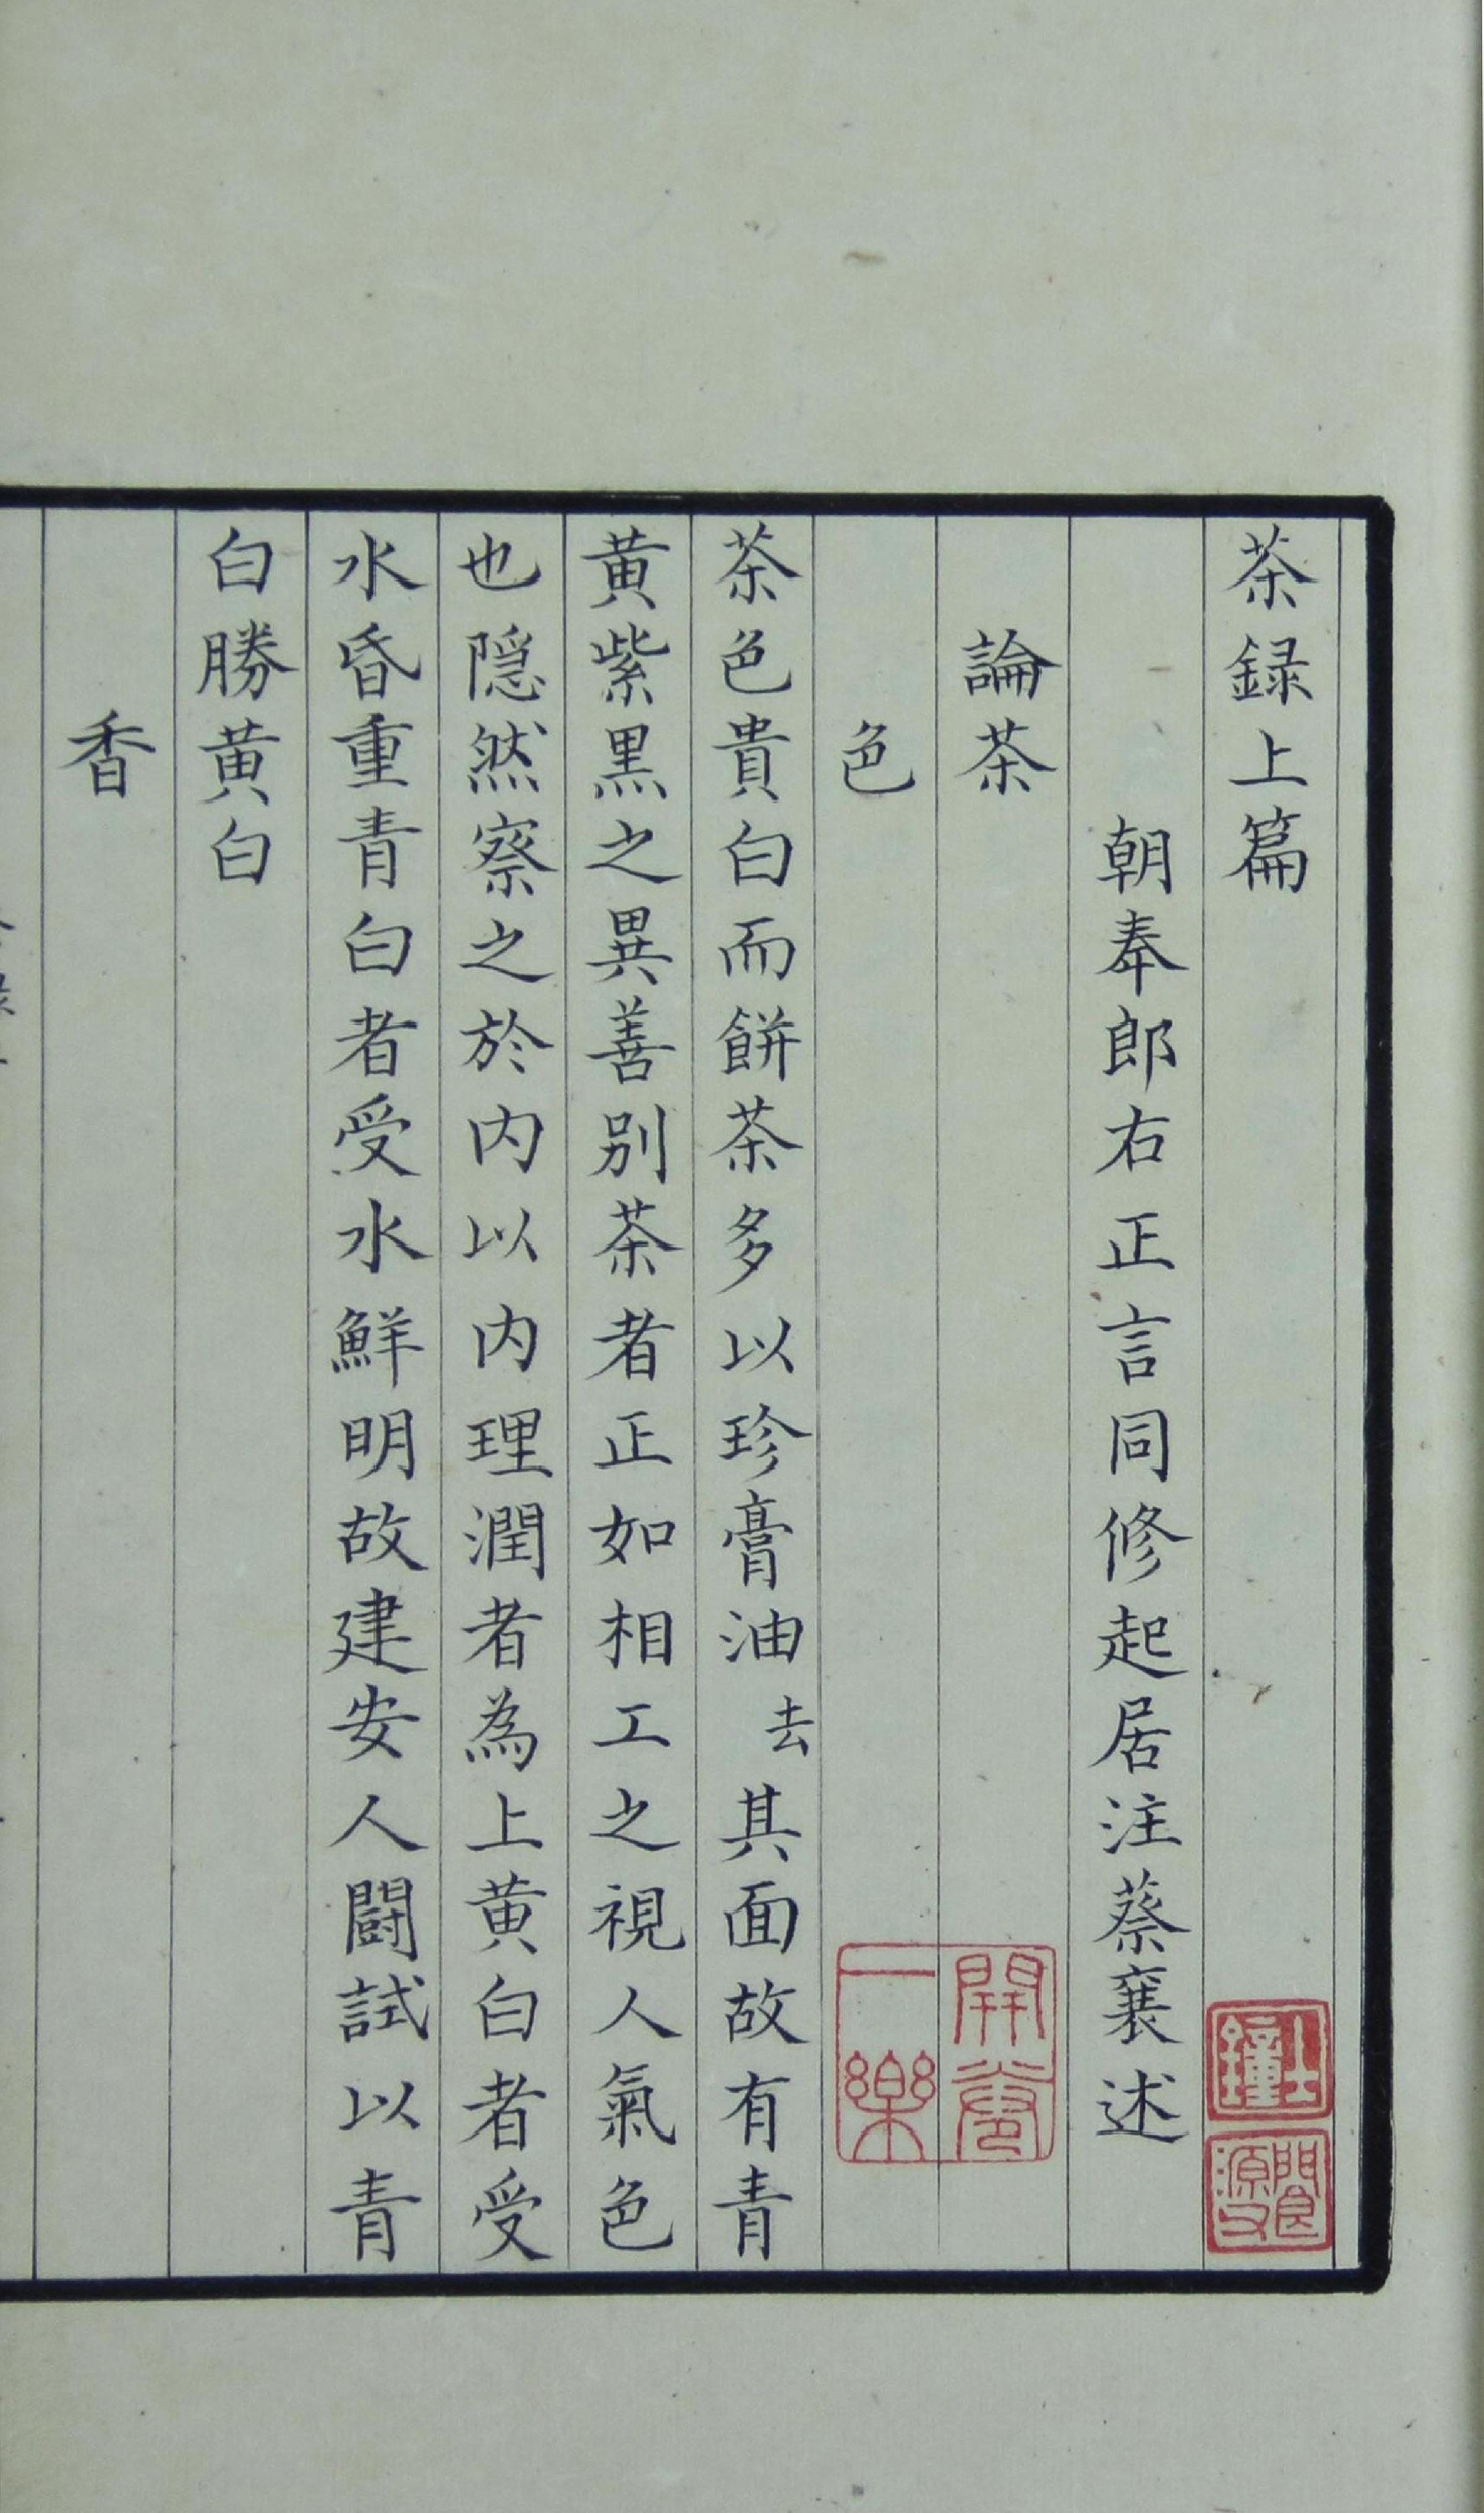 茶録上篇
朝奉郎右正言同修起居注蔡襄述
論茶
色
茶色貴白而餅茶多以珍膏油去其面故有青
黄紫黒之異善别茶者正如相工之視人氣色
也隠然察之於内以内理潤者為上黄白者受
水昏重青白者受水鮮明故建安人闘試以青
白勝黄白
香
開卷一樂